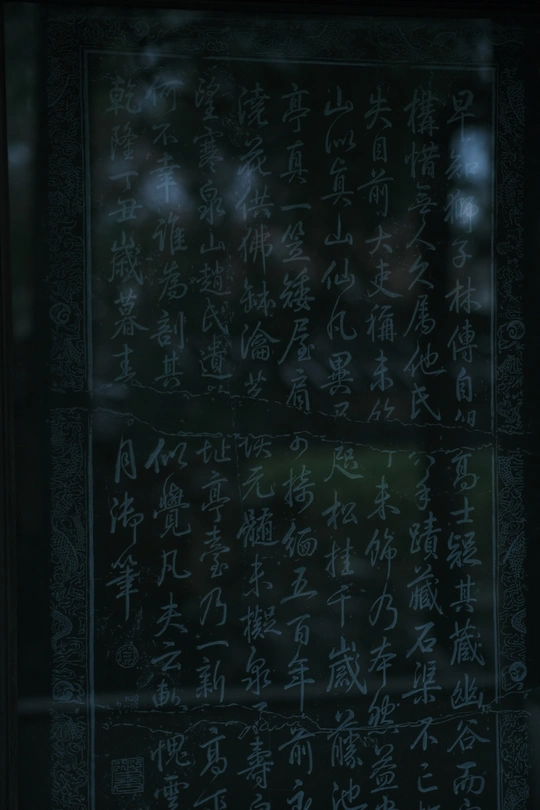 早知獅子林傳自倪高士疑其藏幽谷而
構惜無人久屬他氏手蹟藏石渠不亡
失目前大吏稱未飾乃本然益
山似真山仙凡異咫松挂千歲藤池
亭真一笠矮屋肩可掎緬五百年前
澆花供佛缽瀹茗元髓未擬泉石壽
望寒泉山趙氏遺址亭臺乃一新高下
何不幸誰為剖其似覺凡夫云慚愧雲
乾隆丁丑歲暮春月御筆